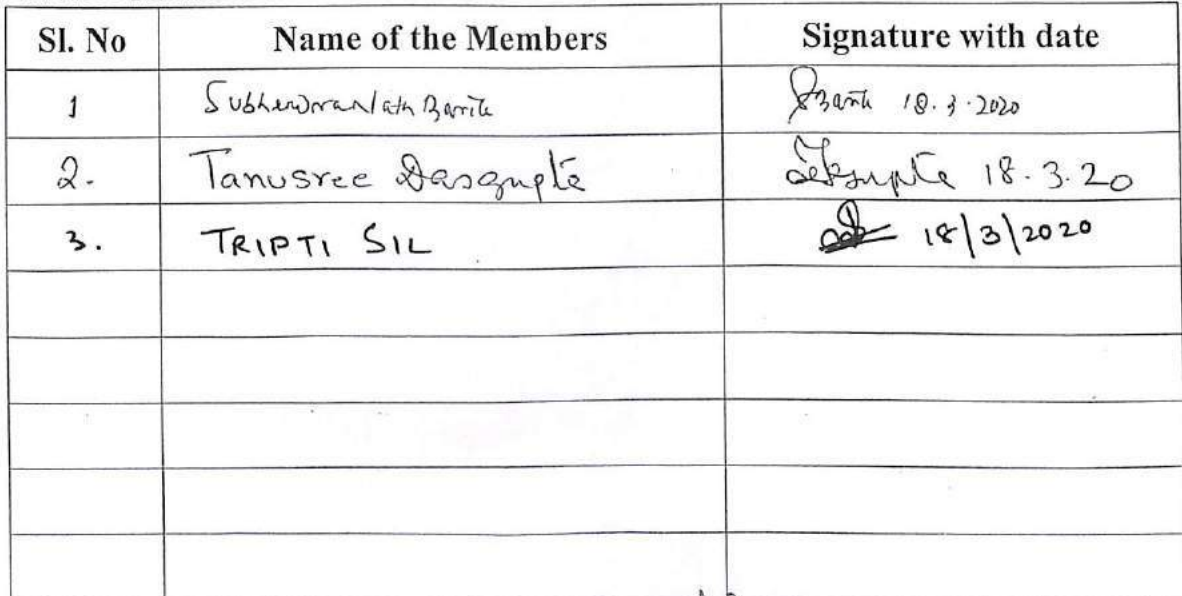 Sl. No Name of the Members Signature with date
1 Barik 18.3.2020
2. Tanusree Dasgupta 18.3.20
3. TRIPTI SIL 18/3/2020